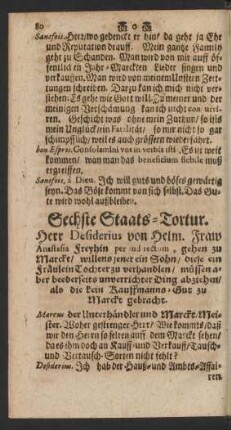 80
Sansfois. Herr/ wo gedenckt er hin? da geht ja Ehr
und Reputation drauff. Mein gantze Family
geht zu Schanden. Man wird von mir auff öf-
fentlichen Jahr-Marckten Lieder singen und
verkauffen. Man wird von meinem Unstern Zei-
tungen schreiben. Dazu kan ich mich nicht ver-
stehen. Es gehe wie Gott will. Zu meiner und der
meinigen Verschämung kan ich nicht con
ren. Geschicht was ohne mein Zuthun/ so ists
mein Unglück/ein Fatalität/ so mir nicht so gar
schimpflich/ weil es auch grössern wiederfährt.
bon Espres. Consolamini vos in verbis isti. Es ist weit
kommen/ wann man das beneficium flebile muß
ergreiffen.
Sansfoies, à Dieu. Ich will guts und böses gewärtig
seyn. Das Böse kommt von sich selbst. Das Gu-
te wird wohl außbleiben.
Sechste Staats-Tortur.
Herr Desiderius von Helm. Fraw
Anastasia Freyhin per indirectum, gehen zu
Marckt/ willens jener ein Sohn/ diese ein
Fräulein Tochter zu verhandlen/ müssen a-
ber beederseits unverrichter Ding abziehen/
als die kein Kauffmanns-Gut zu
Marckt gebracht.
der Unterhändler und Marckt-Mei-
ster. Woher gestrenger Herr/ Wie kommts/ daß
wir den Herrn so selten auff dem Marckt sehen/
da es ihm doch an Kauff- und Verkauff/ Tausch-
und Vertausch-Sorten nicht fehlt?
Desiderius. Ich hab der Hauß- und Ambts-Affai-
ren